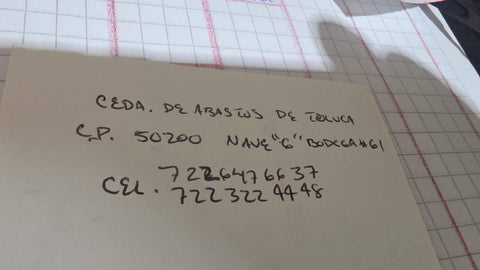 CEDA. DE ABASTOS DE TOLUCA
C.P. 50200 NAVE "G" BODEGA #61
7226476637
CEL. 7223224448